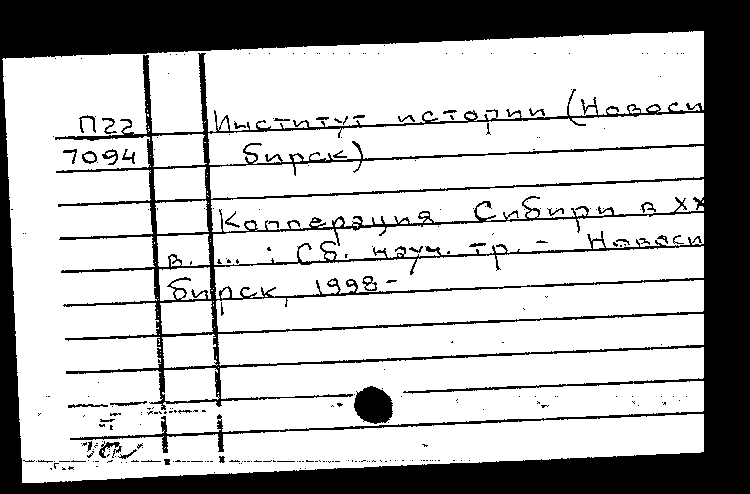 П22 Институт истории (Новоси
7094 бирск)
Копперация Сибири в XX
в. ... : Сб. науч. тр. - Новоси
бирск, 1998-